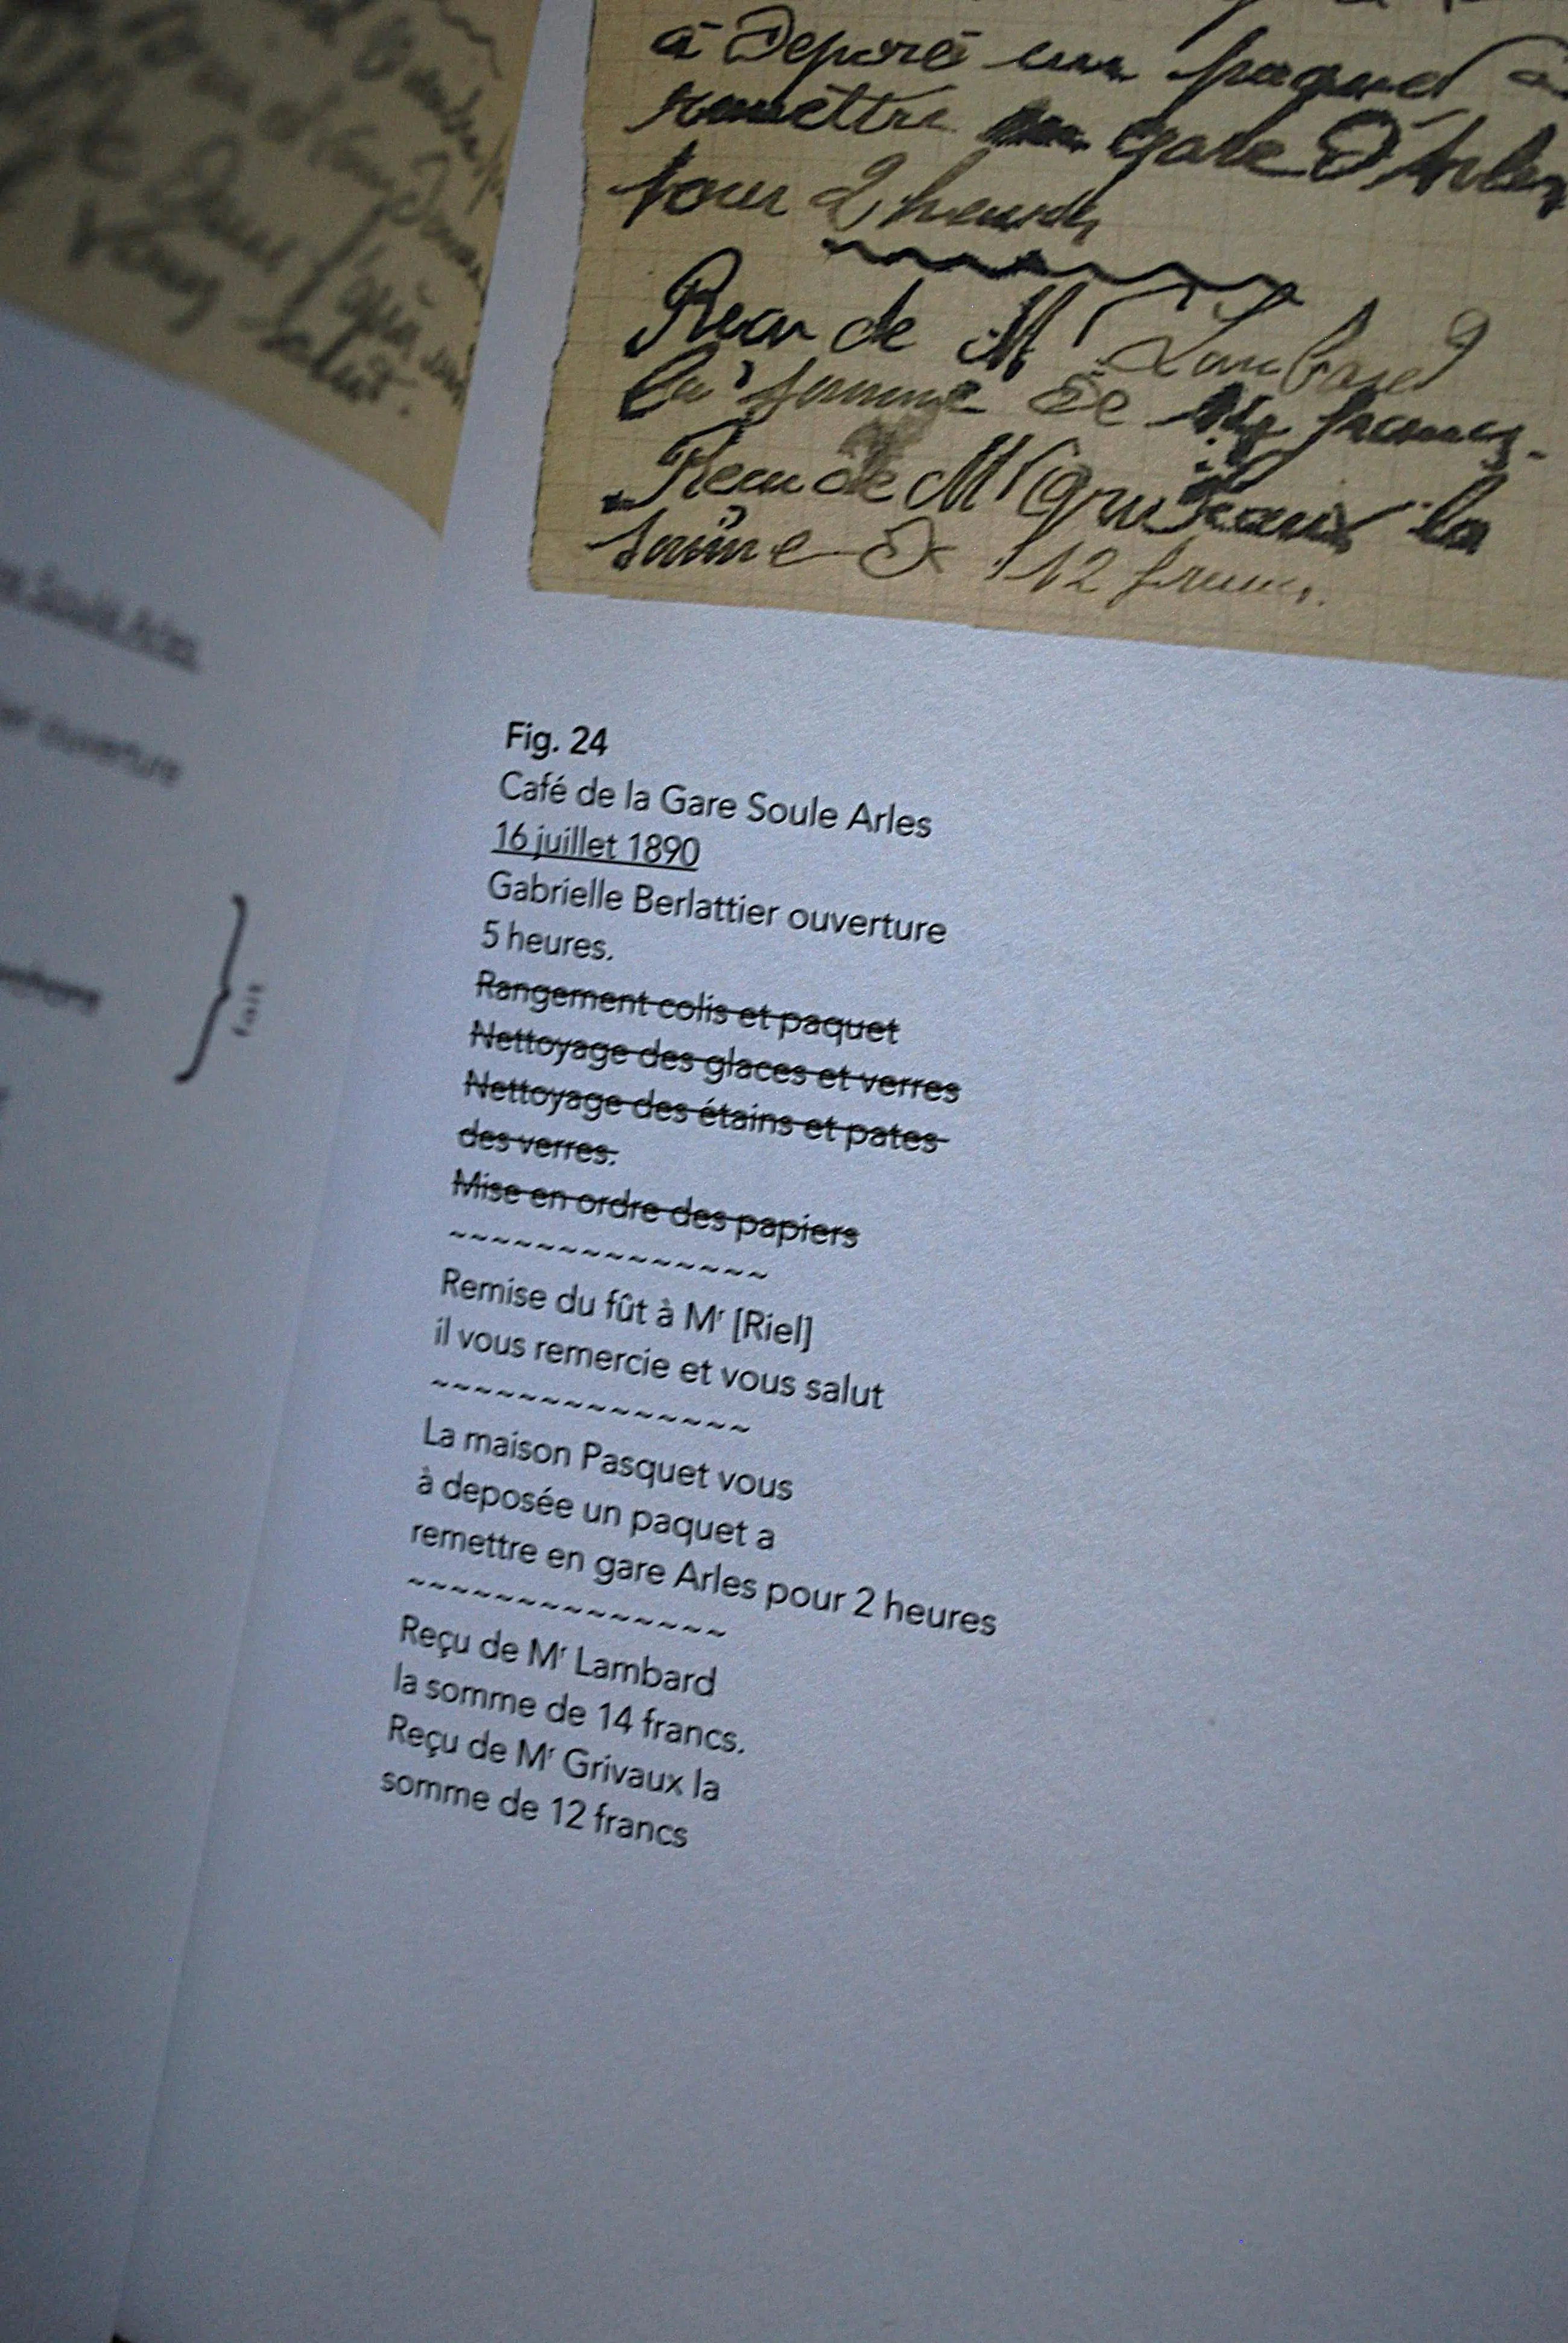 à Deposé un paquet à
remettre en gare D'Arles
pour 2 heures
Recu de Mr Lambard
la somme de francs.
Recu de Mr Grivaux la
somme de 12 francs.
vous salut.
ouverture
fait
Fig. 24
Café de la Gare Soule Arles
16 juillet 1890
Gabrielle Berlattier ouverture
5 heures.
Rangement colis et paquet
Nettoyage des glaces et verres
Nettoyage des étains et pates
des verres.
Mise en ordre des papiers
~~~~~~~~~~~~~~
Remise du fût à Mʳ [Riel]
il vous remercie et vous salut
~~~~~~~~~~~~~~
La maison Pasquet vous
à deposée un paquet a
remettre en gare Arles pour 2 heures
~~~~~~~~~~~~~~
Reçu de Mʳ Lambard
la somme de 14 francs.
Reçu de Mʳ Grivaux la
somme de 12 francs